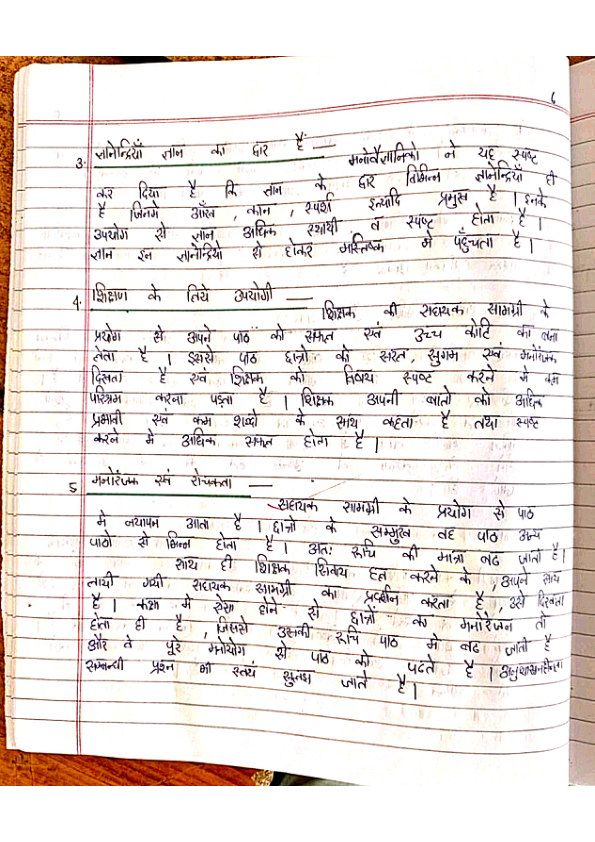 ६
3. ज्ञानेन्द्रियाँ ज्ञान का द्वार है —
मनोवैज्ञानिको ने यह स्पष्ट
कर दिया है कि ज्ञान के द्वार विभिन्न ज्ञानेन्द्रियाँ ही
है जिनमे आँख, कान, स्पर्श इत्यादि प्रमुख है। इनके
उपयोग से ज्ञान अधिक स्थायी व स्पष्ट होता है।
ज्ञान इन ज्ञानेन्द्रियो से होकर मस्तिष्क मे पहुँचता है।
4. शिक्षण के लिये उपयोगी —
शिक्षक की सहायक सामग्री के
प्रयोग से अपने पाठ को सफल एवं उच्च कोटि का बना
लेता है। इससे पाठ छात्रो को सरल, सुगम एवं मनोरंजक
दिखता है एवं शिक्षक को विषय स्पष्ट करने मे कम
परिश्रम करना पड़ता है। शिक्षक अपनी बातो को अधिक
प्रभावी एवं कम शब्दो के साथ कहता है तथा स्पष्ट
करने मे अधिक सफल होता है।
5 मनोरंजक एवं रोचकता —
सहायक सामग्री के प्रयोग से पाठ
मे नयापन आता है। छात्रो के सम्मुख वह पाठ अन्य
पाठो से भिन्न होता है। अतः रूचि की मात्रा बढ जाती है।
साथ ही शिक्षक हल करने के, अपने साथ
लायी गयी सहायक सामग्री का प्रदर्शन करता है, उसे दिखता
है। कक्षा मे ऐसा होने से छात्रो का मनोरंजन तो
होता ही है, जिससे उसकी रूचि पाठ मे बढ जाती है
और वे पूरे मनोयोग से पाठ को पढते है। अनुशासनहीनता
सम्बन्धी प्रश्न भी स्वयं सुलझ जाते है।